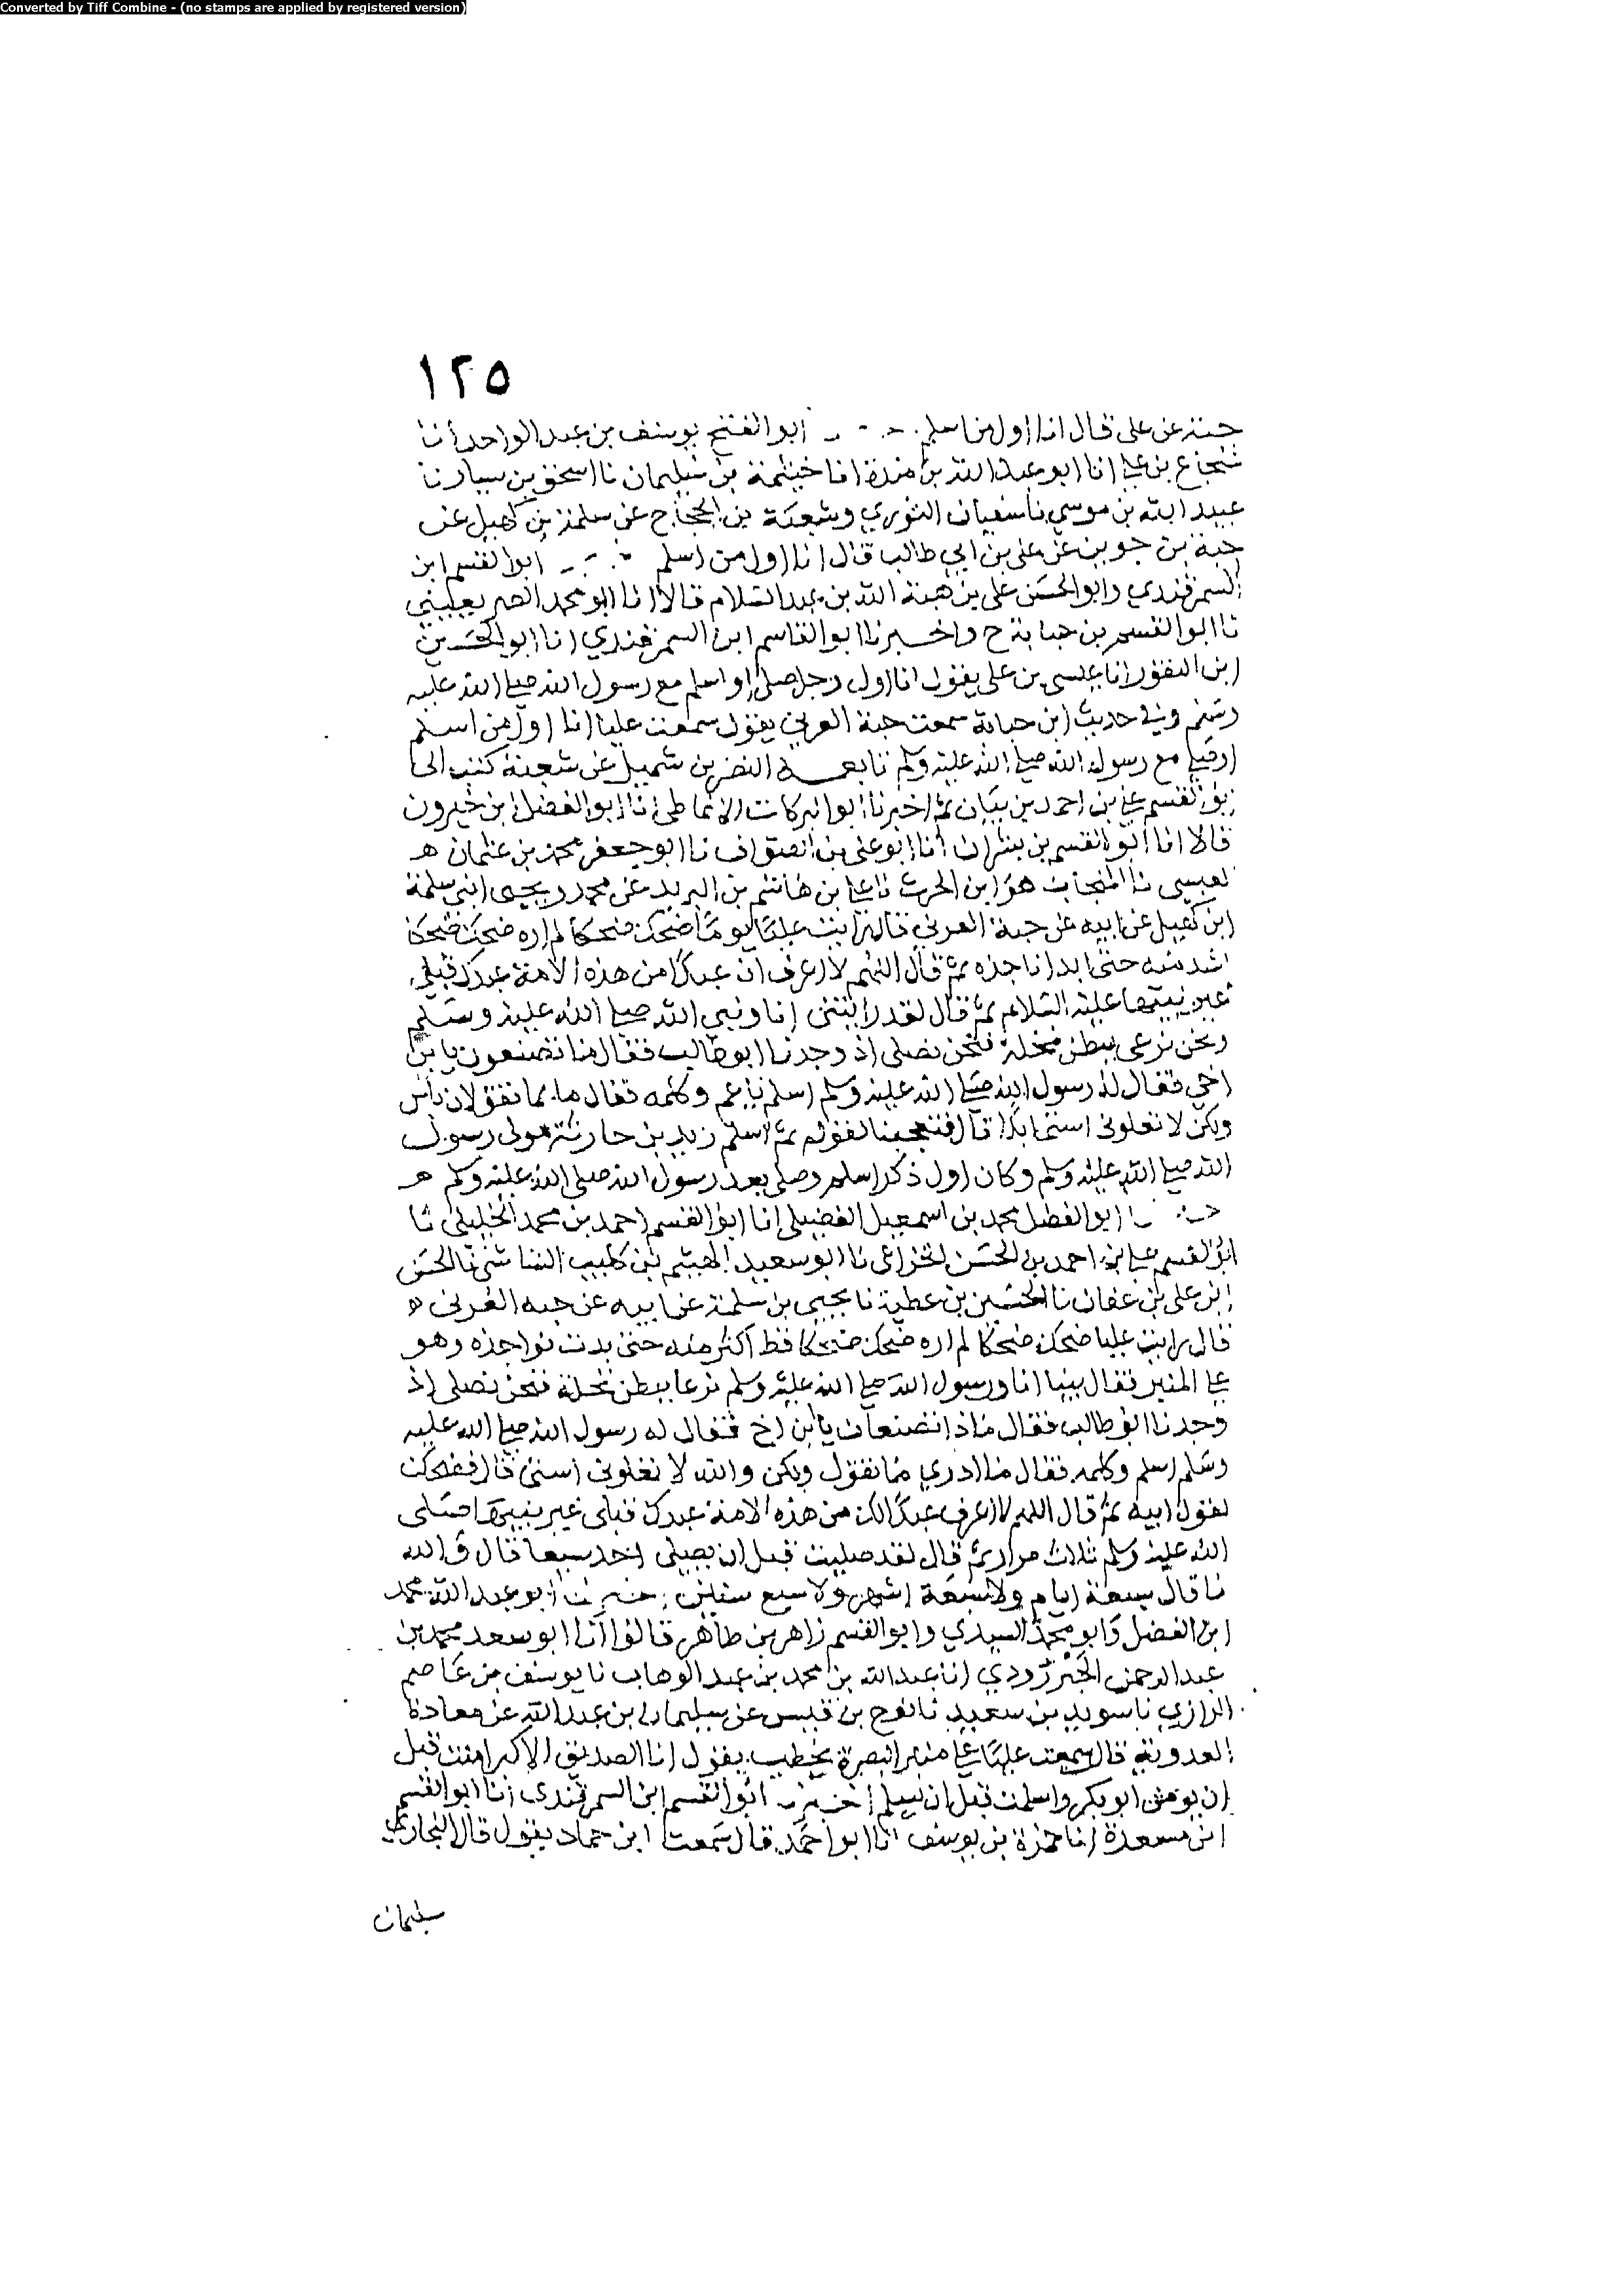 Converted by Tiff Combine - (no stamps are applied by registered version)
١٢٥
حبة عن علي قال انا اول من اسلم ابو الفتح يوسف بن عبد الواحد أنا
شجاع بن علي انا ابو عبد الله بن مندة انا خيثمة بن سليمان نا اسحق بن سيار نا
عبيد الله بن موسي نا سفيان الثوري وشعبة بن الحجاج عن سلمة بن كهيل عن
حبة بن جوين عن علي بن ابي طالب قال انا اول من اسلم ابو القسم ابن
السمرقندي وابو الحسن علي بن هبة الله بن عبد السلام قالا انا ابو محمد الصريفيني
نا ابو القسم بن حبابة ح واخبرنا ابو القاسم ابن السمرقندي انا ابو الحسين
ابن النقور انا عيسى بن علي يقول انا اول رجل صلى او اسلم مع رسول الله صلى الله عليه
وسلم وفي حديث ابن حبابة سمعت حبة العرني يقول سمعت عليا انا اول من اسلم
او صلى مع رسول الله صلى الله عليه وسلم تابعه النضر بن شميل عن شعبة كتب الي
ابو القسم علي بن احمد بن بيان ثم اخبرنا ابو البركات الانماطي انا ابو الفضل ابن خيرون
قالا انا ابو القسم بن بشران انا ابو علي بن الصواف نا ابو جعفر محمد بن عثمان هـ
العبسي نا المنجاب هو ابن الحرث نا علي بن هاشم بن البريد عن محمد ويحيى ابني سلمة
ابن كهيل عن ابيه عن حبة العرني قال رايت عليا يوما ضحك ضحكا لم اره ضحك ضحكا
اشد منه حتى ابدا ناجذه ثم قال اللهم لا اعرف ان عبدا من هذه الامة عبدك قبلي
غير نبيها عليه السلام ثم قال لقد رايتني انا ونبي الله صلى الله عليه وسلم
ونحن نرعى ببطن نخلة فنحن نصلي اذ وجدنا ابو طالب فقال ما تصنعون يا بن
اخي فقال له رسول الله صلى الله عليه وسلم اسلم يا عم وكلمه فقال ما بما تقولان باس
ولكن لا تعلوني استي ابدا قال فتعجبنا لقوله ثم اسلم زيد بن حارثة مولى رسول
الله صلى الله عليه وسلم وكان اول ذكر اسلم وصلى بعد رسول الله صلى الله عليه وسلم هـ
ابو الفضل محمد بن اسمعيل الفضيلي انا ابو القسم احمد بن محمد الخليلي نا
ابو القسم علي بن احمد بن الحسن الخزاعي نا ابو سعيد الهيثم بن كليب الشاشي نا الحسن
ابن علي بن عفان نا الحسين بن عطية نا يحيى بن سلمة عن ابيه عن حبه العرني هـ
قال رايت عليا ضحك ضحكا لم اره ضحك ضحكا قط اكثر منه حتى بدت نواجذه وهو
على المنبر فقال بينا انا ورسول الله صلى الله عليه وسلم نرعا ببطن نخلة فنحن نصلي اذ
وجدنا ابو طالب فقال ماذا تصنعان يا بن اخ فقال له رسول الله صلى الله عليه
وسلم اسلم وكلمه فقال ما ادري ما تقول ولكن والله لا تعلوني استي قال فضحك
لقول ابيه ثم قال اللهم لا اعرف عبدا لك من هذه الامة عبدك قبلي غير نبيها صلى
الله عليه وسلم ثلاث مرار ثم قال لقد صليت قبل ان يصلي احد سبعا قال والله
ما قال سبعة ايام ولا سبعة اشهر ولا سبع سنين ابو عبد الله محمد
ابن الفضل وابو محمد السيدي وابو القسم زاهر بن طاهر قالوا انا ابو سعد محمد بن
عبد الرحمن الجنزرودي انا عبد الله بن محمد بن عبد الوهاب نا يوسف بن عاصم
الرازي نا سويد بن سعيد نا نوح بن قيس عن سليمان بن عبد الله عن معاذة
العدوية قال سمعت عليا على منبر البصرة يخطب يقول انا الصديق الاكبر امنت قبل
ان يومن ابو بكر واسلمت قبل ان يسلم ابو القسم ابن السمرقندي انا ابو القسم
ابن مسعدة انا حمزة بن يوسف انا ابو احمد قال سمعت ابن حماد يقول قال البخاري
سليمان